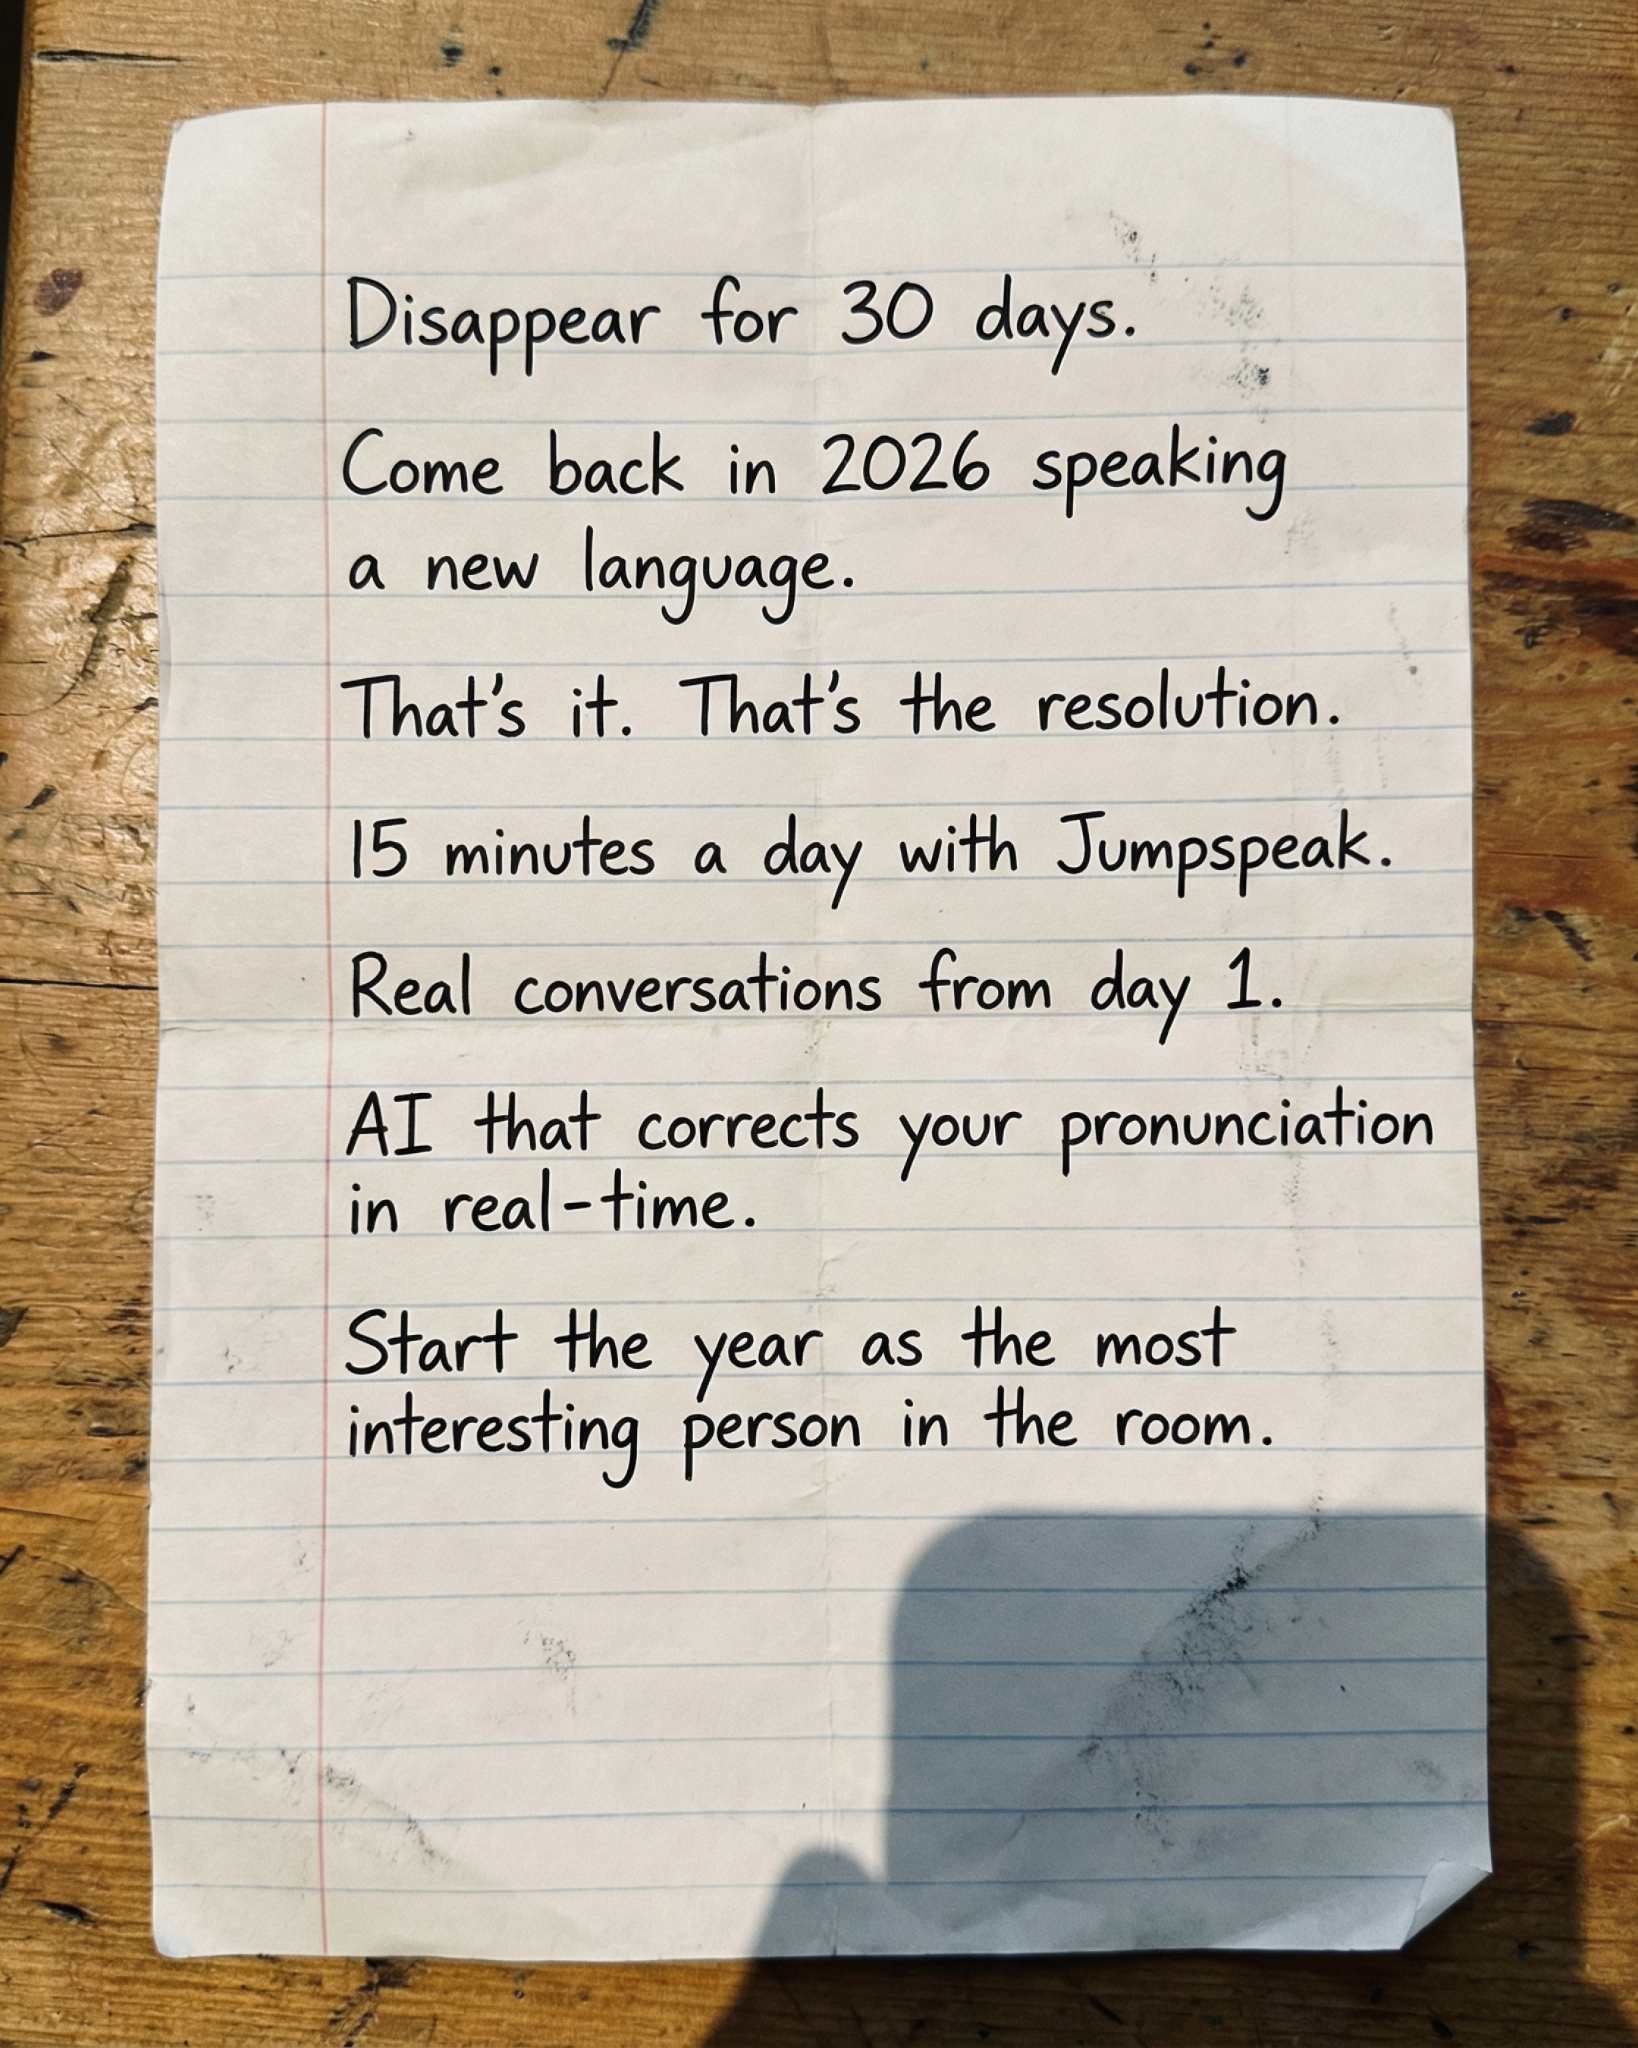 Disappear for 30 days.
Come back in 2026 speaking
a new language.
That's it. That's the resolution.
15 minutes a day with Jumpspeak.
Real conversations from day 1.
AI that corrects your pronunciation
in real-time.
Start the year as the most
interesting person in the room.